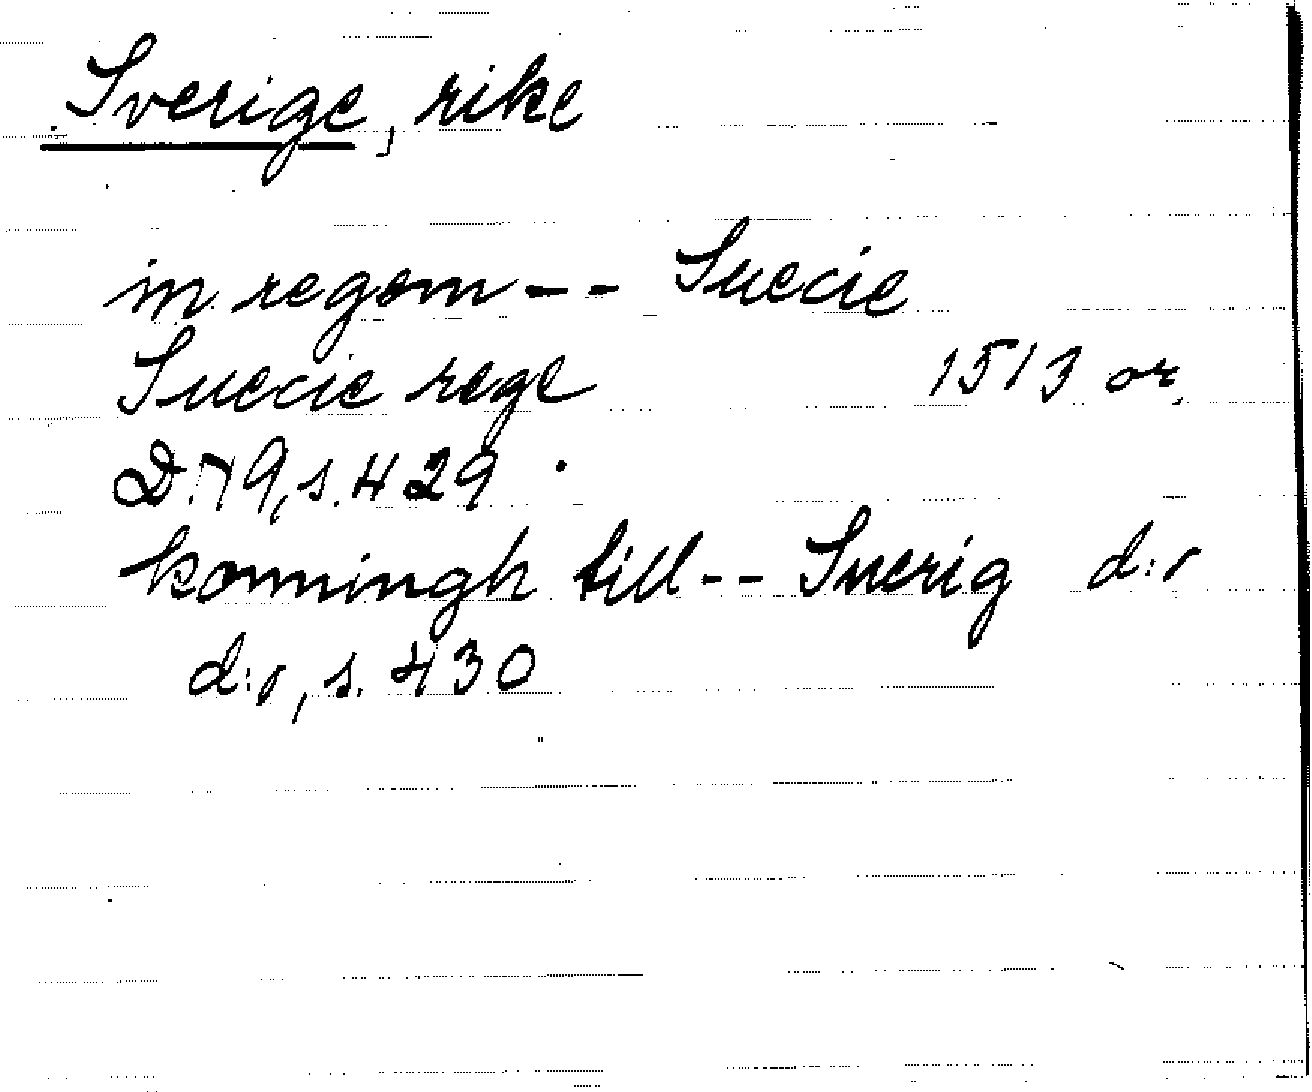 Sverige, rike
in regem -- Suecie
Suecie rege 1513 or.
D. 79, s. 429.
konningh till -- Swerig d:o
d:o, s. 430